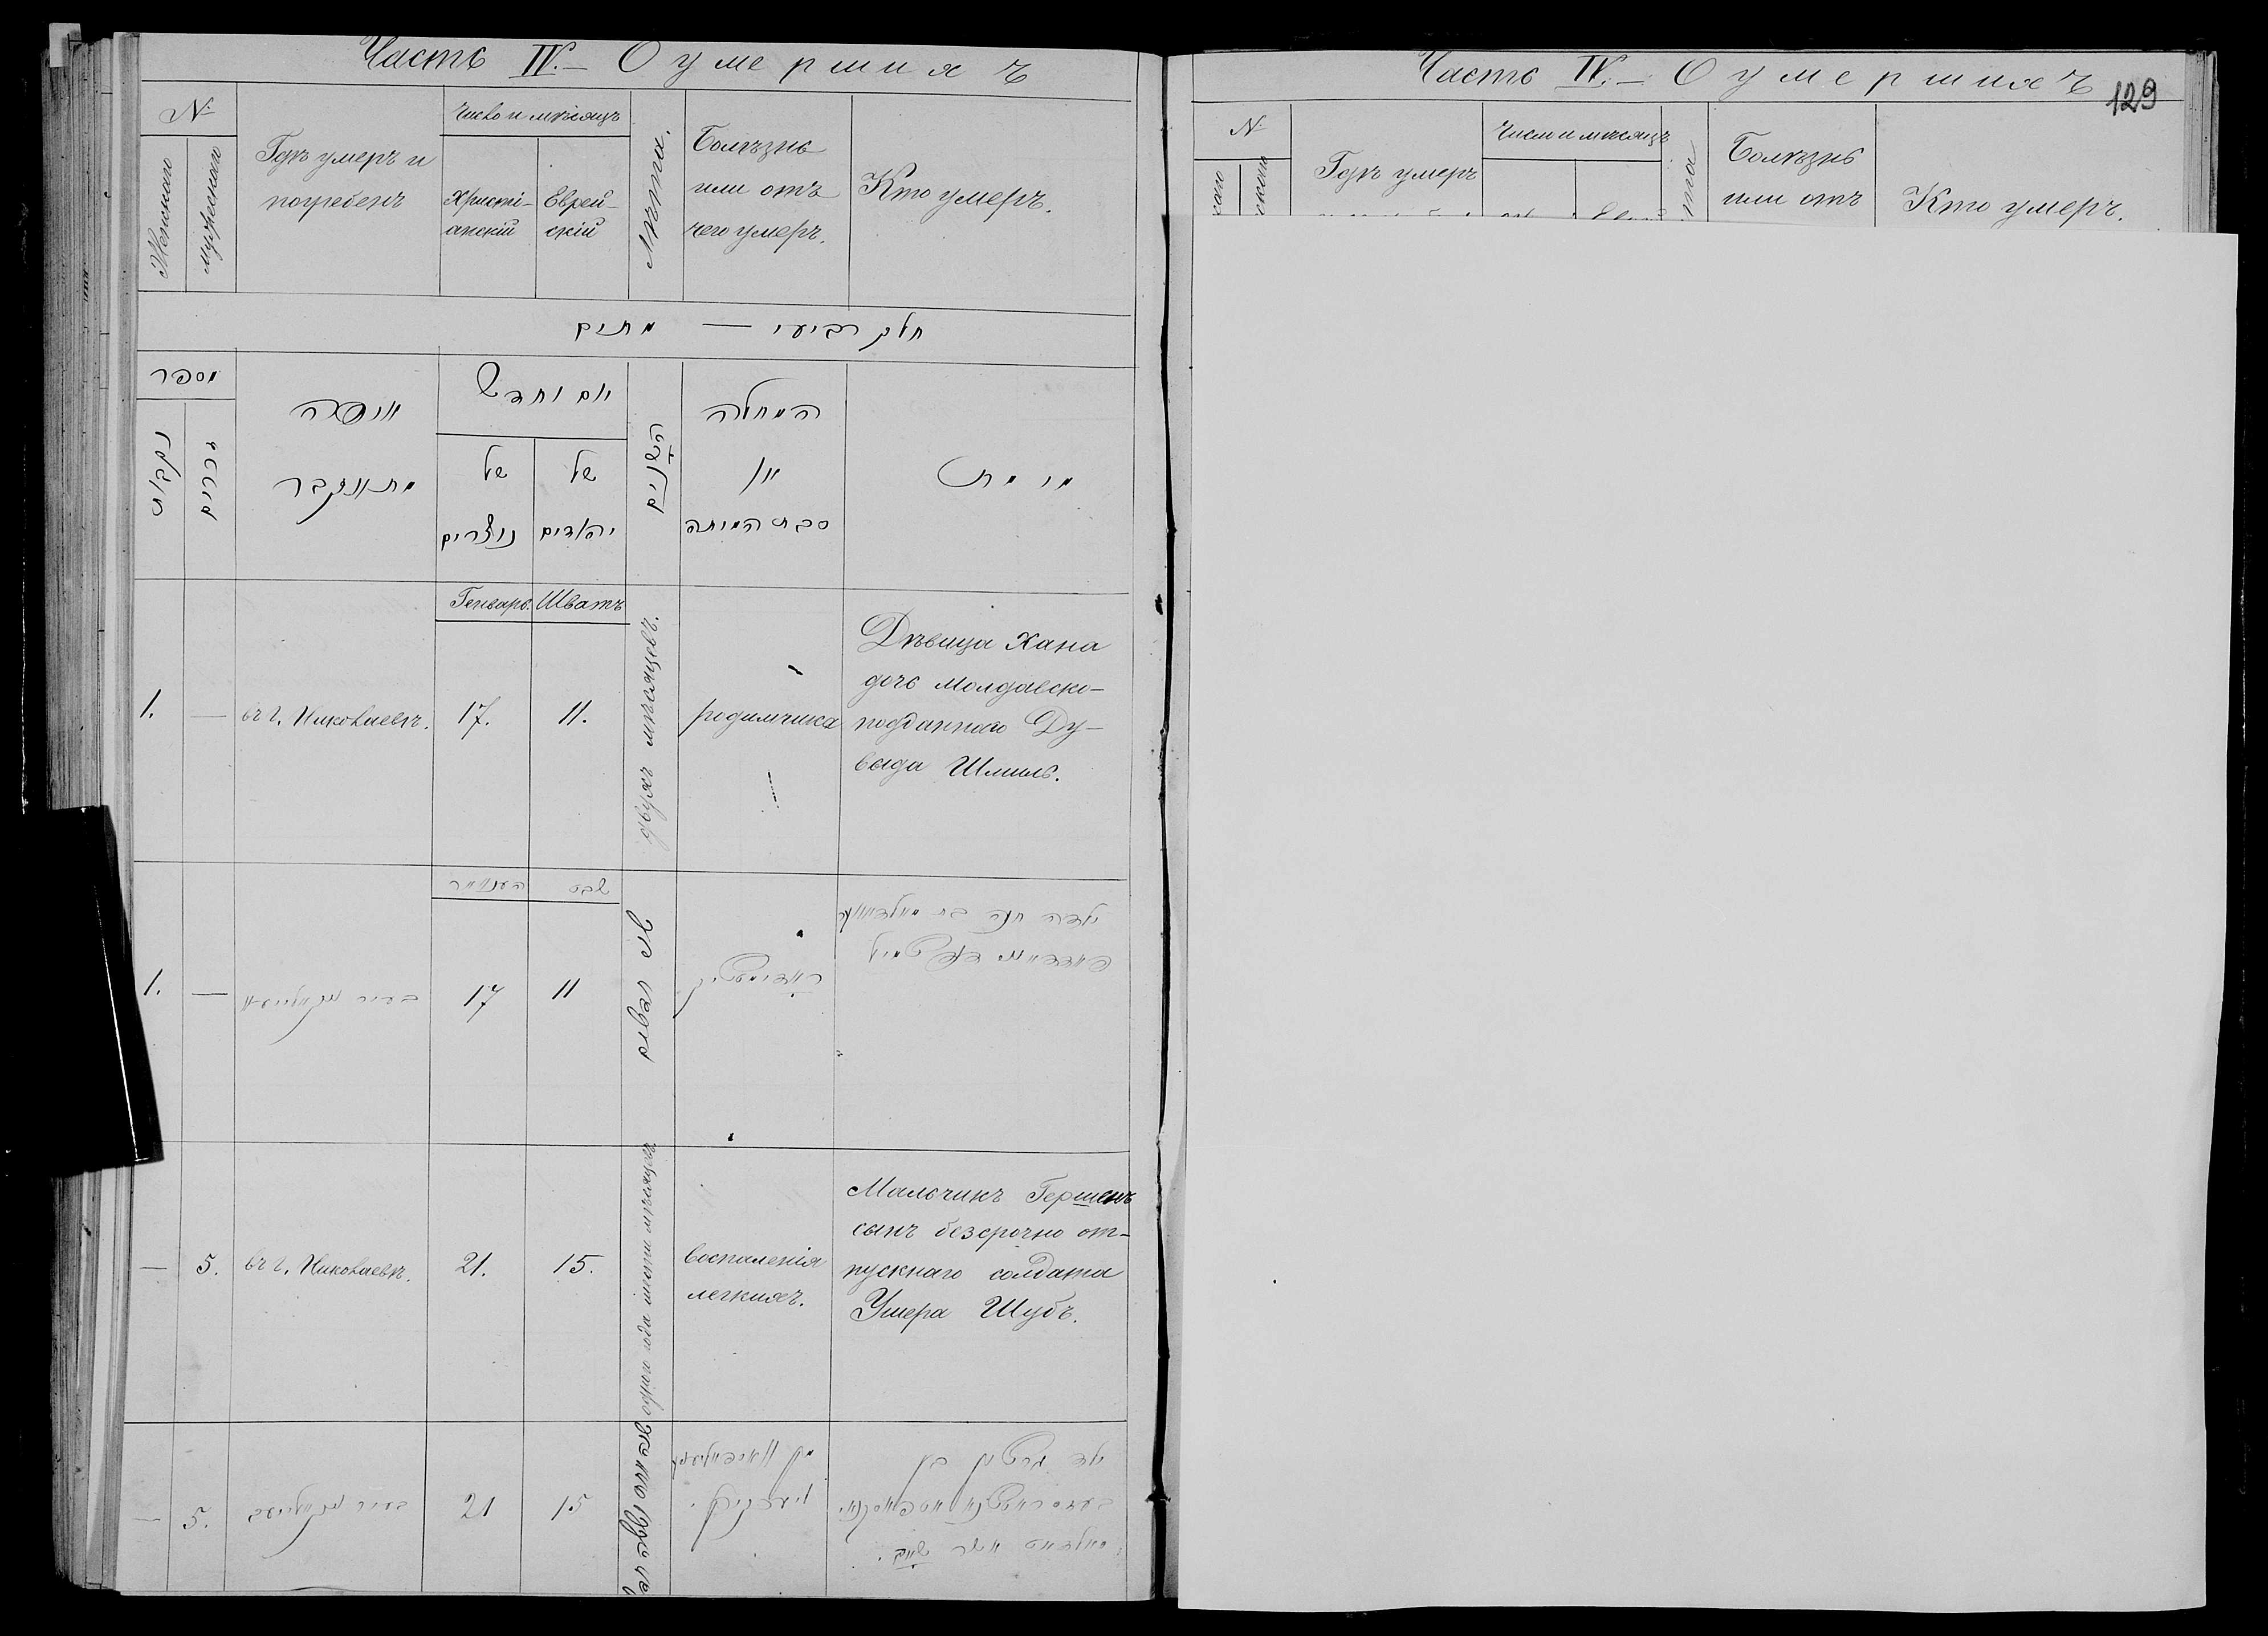 Часть IV. — О умершихъ
№
Женскаго
мужескаго
Гдѣ умеръ и
погребенъ
Число и мѣсяцъ
Христі-
анскій
Еврей-
скій
Лѣта.
Болѣзнь
или отъ
чего умеръ.
Кто умеръ.
חלק רביעי — מתים
מספר
איפה
מת ונקבר
יום וחדש
של
נוצרים
של
יהודים
המחלה
או
סבת המיתה
מי מת
Генварь.
Шватъ
1.
—
въ г. Николаевѣ.
17.
11.
двухъ мѣсяцевъ.
родимчика
Дѣвица Хана
дочь молдавско-
подданнаго Ду-
выда Шмиль.
שבט
1.
—
בעיר
17
11
ילדה חנה בת
—
5.
въ г. Николаевѣ.
21.
15.
одного года шести мѣсяцевъ
воспаленія
легкихъ.
Мальчикъ Гершенъ
сынъ безсрочно от-
пускнаго солдата
Ушера Шубъ.
—
5.
בעיר
21
15
ילד גרשון בן
סאלדאט אשר שוב.
Часть IV. — О умершихъ
129
№
Гдѣ умеръ
Число и мѣсяцъ
Болѣзнь
или отъ
Кто умеръ.